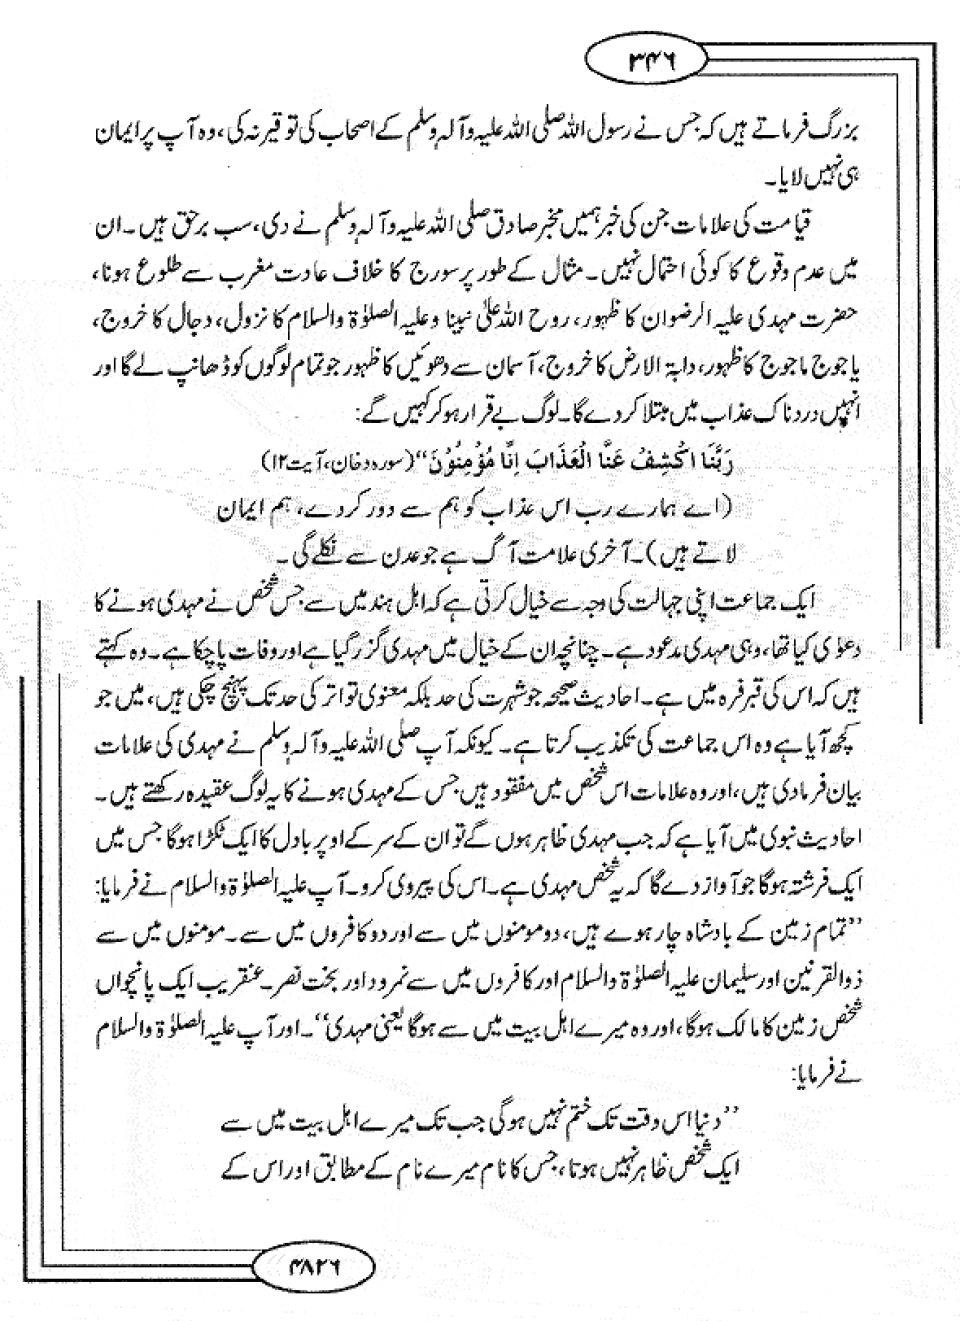 ۳۴۶
بزرگ فرماتے ہیں کہ جس نے رسول اللہ صلی اللہ علیہ وآلہ وسلم کے اصحاب کی توقیر نہ کی، وہ آپ پر ایمان
ہی نہیں لایا۔
قیامت کی علامات جن کی خبر ہمیں مخبر صادق صلی اللہ علیہ وآلہ وسلم نے دی، سب برحق ہیں۔ ان
میں عدم وقوع کا کوئی احتمال نہیں۔ مثال کے طور پر سورج کا خلاف عادت مغرب سے طلوع ہونا،
حضرت مہدی علیہ الرضوان کا ظہور، روح اللہ علیٰ نبینا وعلیہ الصلوٰۃ والسلام کا نزول، دجال کا خروج،
یاجوج ماجوج کا ظہور، دابۃ الارض کا خروج، آسمان سے دھوئیں کا ظہور جو تمام لوگوں کو ڈھانپ لے گا اور
انہیں دردناک عذاب میں مبتلا کر دے گا۔ لوگ بے قرار ہو کر کہیں گے:
رَبَّنَا اکْشِفْ عَنَّا الْعَذَابَ اِنَّا مُؤْمِنُوْنَ“ (سورہ دخان، آیت ۱۲)
(اے ہمارے رب اس عذاب کو ہم سے دور کر دے، ہم ایمان
لاتے ہیں)۔ آخری علامت آگ ہے جو عدن سے نکلے گی۔
ایک جماعت اپنی جہالت کی وجہ سے خیال کرتی ہے کہ اہل ہند میں سے جس شخص نے مہدی ہونے کا
دعوٰی کیا تھا، وہی مہدی مدعود ہے۔ چنانچہ ان کے خیال میں مہدی گزر گیا ہے اور وفات پا چکا ہے۔ وہ کہتے
ہیں کہ اس کی قبر فرہ میں ہے۔ احادیث صحیحہ جو شہرت کی حد بلکہ معنوی تواتر کی حد تک پہنچ چکی ہیں، میں جو
کچھ آیا ہے وہ اس جماعت کی تکذیب کرتا ہے۔ کیونکہ آپ صلی اللہ علیہ وآلہ وسلم نے مہدی کی علامات
بیان فرما دی ہیں، اور وہ علامات اس شخص میں مفقود ہیں جس کے مہدی ہونے کا یہ لوگ عقیدہ رکھتے ہیں۔
احادیث نبوی میں آیا ہے کہ جب مہدی ظاہر ہوں گے تو ان کے سر کے اوپر بادل کا ایک ٹکڑا ہوگا جس میں
ایک فرشتہ ہوگا جو آواز دے گا کہ یہ شخص مہدی ہے۔ اس کی پیروی کرو۔ آپ علیہ الصلوٰۃ والسلام نے فرمایا:
”تمام زمین کے بادشاہ چار ہوئے ہیں، دو مومنوں میں سے اور دو کافروں میں سے۔ مومنوں میں سے
ذوالقرنین اور سلیمان علیہ الصلوٰۃ والسلام اور کافروں میں سے نمرود اور بخت نصر۔ عنقریب ایک پانچواں
شخص زمین کا مالک ہوگا، اور وہ میرے اہل بیت میں سے ہوگا یعنی مہدی“۔ اور آپ علیہ الصلوٰۃ والسلام
نے فرمایا:
”دنیا اس وقت تک ختم نہیں ہوگی جب تک میرے اہل بیت میں سے
ایک شخص ظاہر نہیں ہوتا، جس کا نام میرے نام کے مطابق اور اس کے
۴۸۲۶